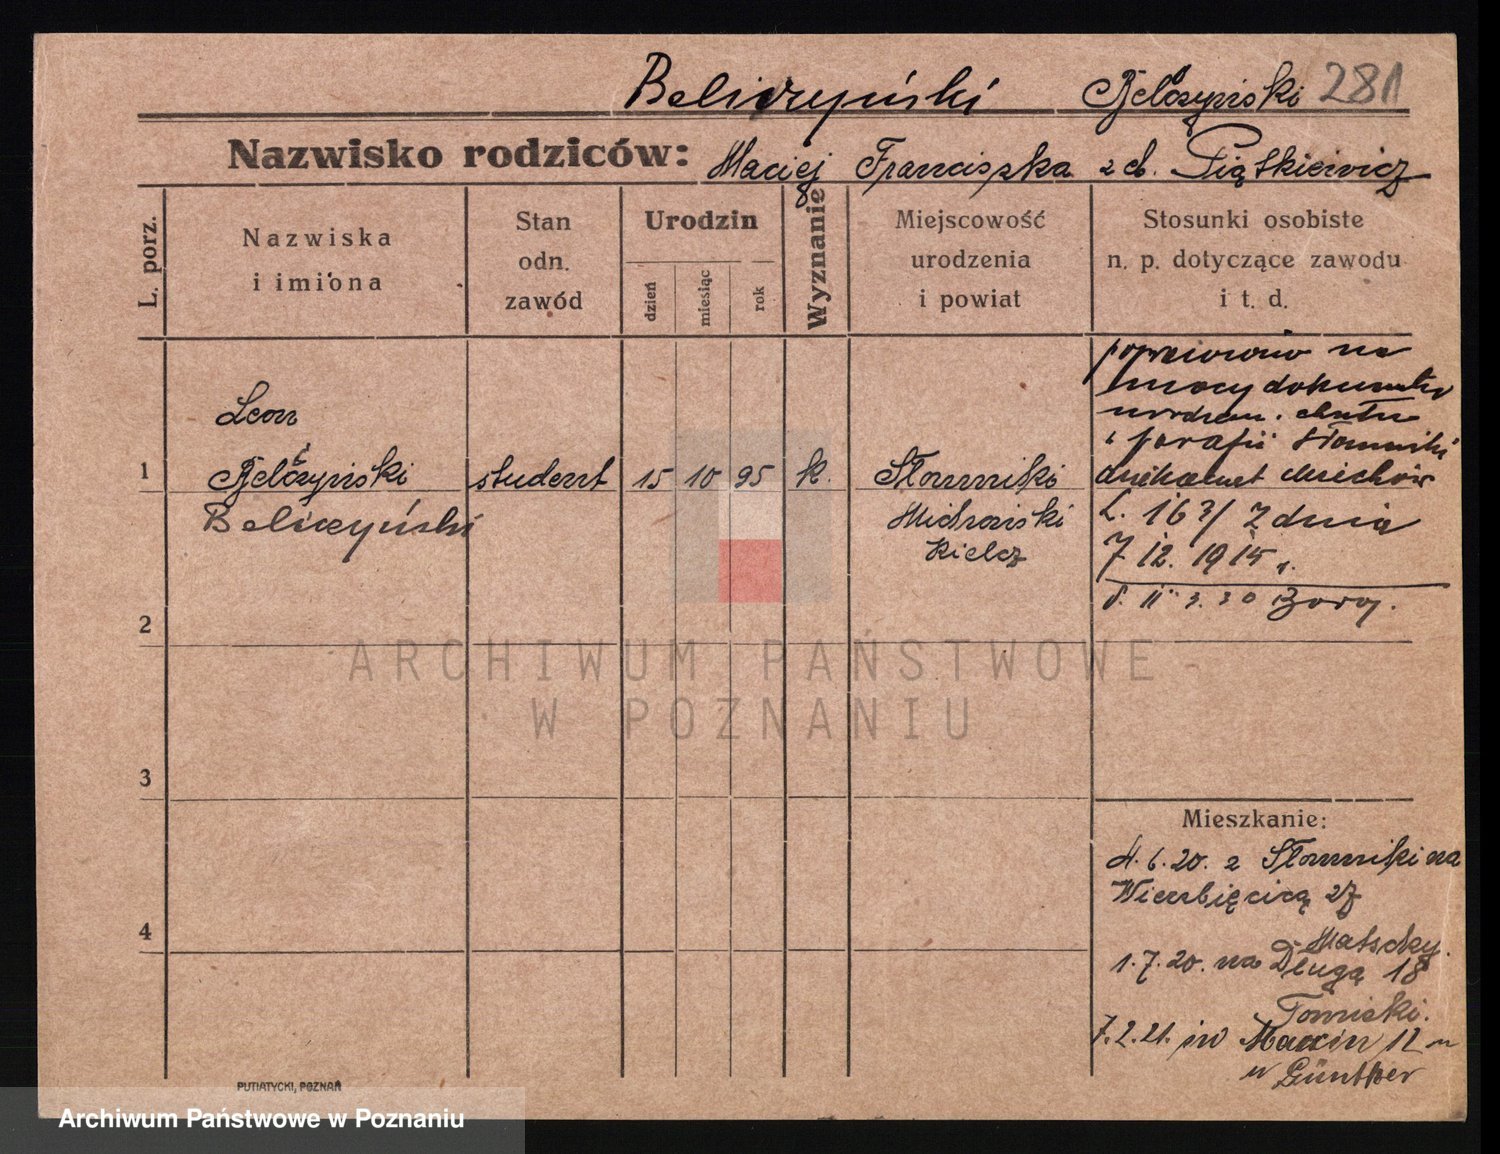 Beliczyński Bełczyński 281
Nazwisko rodziców: Maciej Franciszka z d. Piątkiewicz
L. porz.
Nazwiska
i imiona
Stan
odn.
zawód
Urodzin
dzień
miesiąc
rok
Wyznanie
Miejscowość
urodzenia
i powiat
Stosunki osobiste
n. p. dotyczące zawodu
i t. d.
1
Leon
Bełczyński
Beliczyński
student
15 10 95
k.
Słomniki
Miechowski
Kielcz
poprawiono na
mocy dokumentu
urodzen. chrztu
z parafii Słomniki
dziekanat Miechów
L. 163/ z dnia
7 12. 1915 r.
3. 30
2
3
4
Mieszkanie:
4.6.20. z Słomniki na
Wierzbięcicą 27
Matschy.
1.7.20. na Długą 18
Tomski.
7.2.21. Marcin 12
u Günther
PUTIATYCKI, POZNAŃ
ARCHIWUM PAŃSTWOWE
W POZNANIU
Archiwum Państwowe w Poznaniu